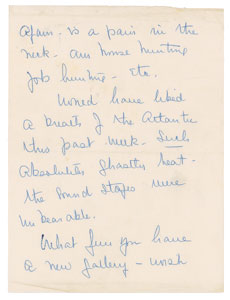 Again - is a pain in the
neck. am house hunting
job hunting - etc.
Would have liked
a breath of the Atlantic
this past week - Such
absolutely ghastly heat -
the sound stages were
unbearable.
What fun you have
a new gallery - wish